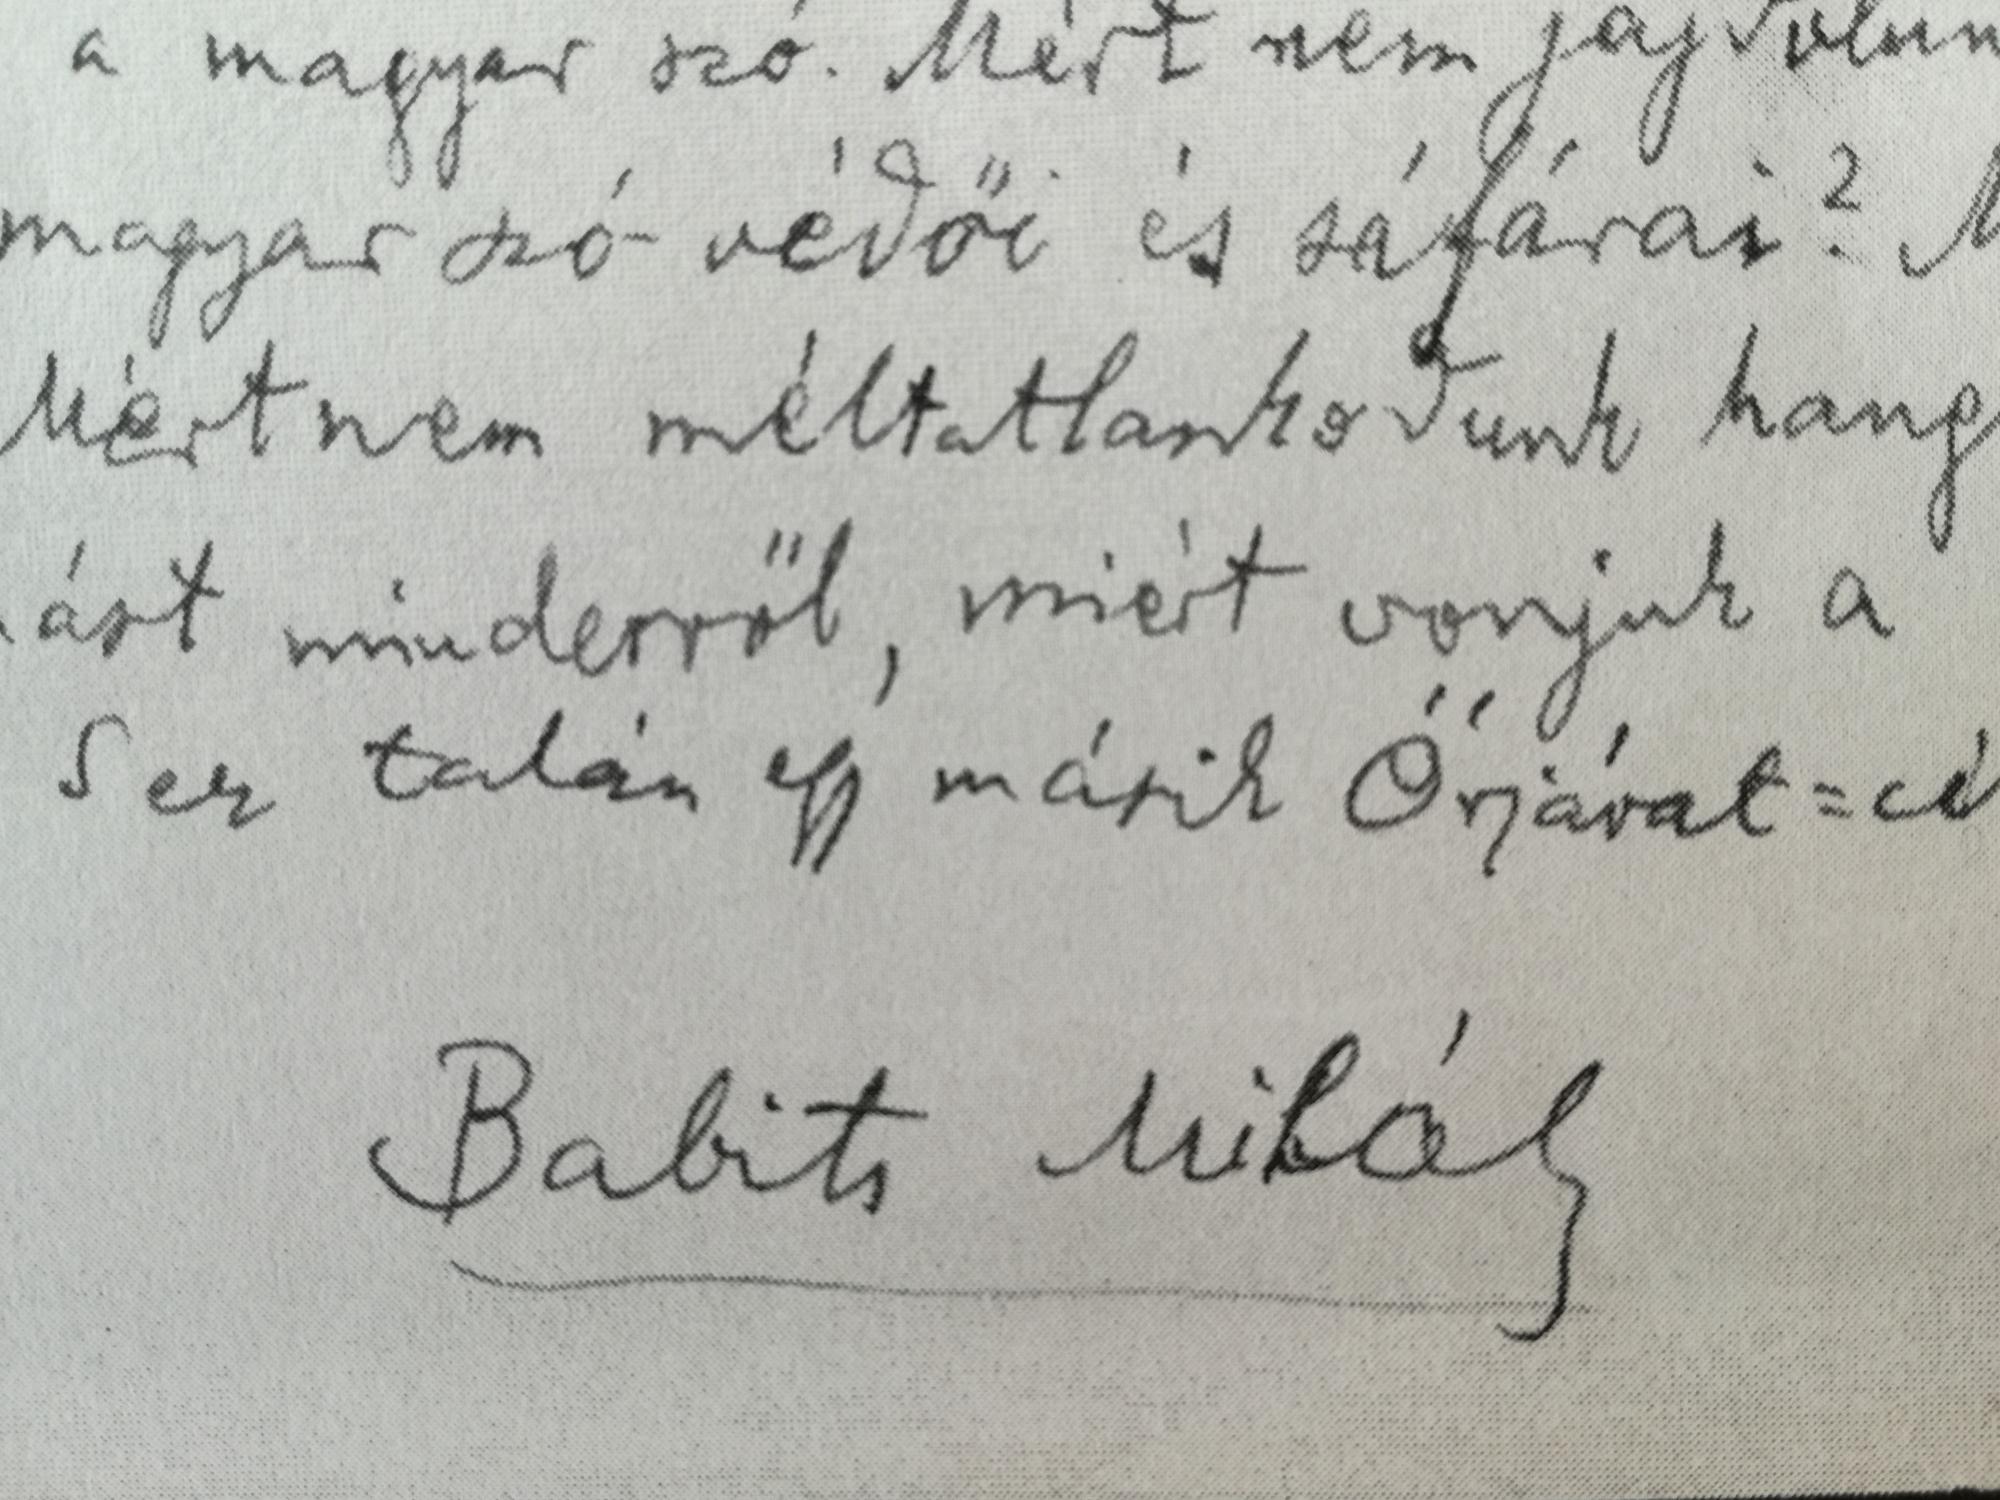 a magyar szó. Mért nem jajdulun
magyar szó védői és sáfárai? M
Mért nem méltatlankodunk hang
minderről, miért vonjuk a
talán egy másik Őrjárat=cí
Babits Mihály